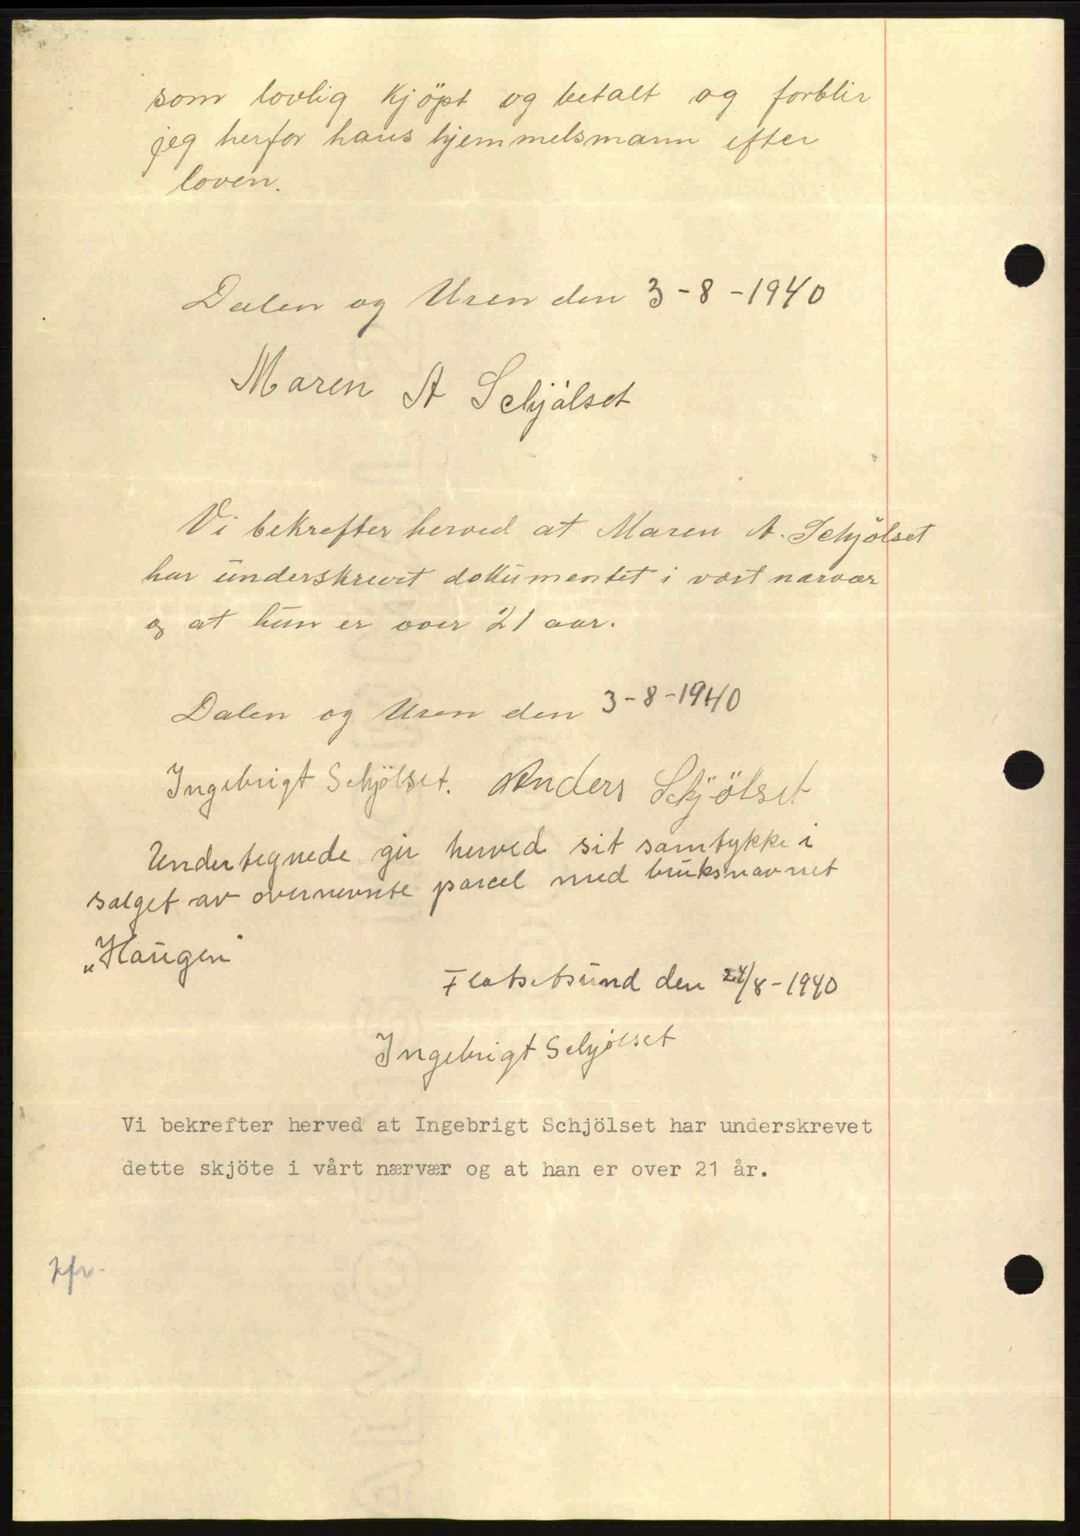 som lovlig kjöpt og betalt og forblir
jeg herfor hans hjemmelsmann efter
loven.
Dalen og Uren den 3-8-1940
Maren A Schjölset
Vi bekrefter herved at Maren A. Schjölset
har underskrevet dokumentet i vort nærvær
og at hun er over 21 aar.
Dalen og Uren den 3-8-1940
Ingebrigt Schjölset. Anders Schjölset
Undertegnede gir herved sit samtykke i
salget av overnevnte parcel med bruksnavnet
„Haugen"
Flatsetsund den 24/8-1940
Ingebrigt Schjölset
Vi bekrefter herved at Ingebrigt Schjölset har underskrevet
dette skjöte i vårt nærvær og at han er over 21 år.